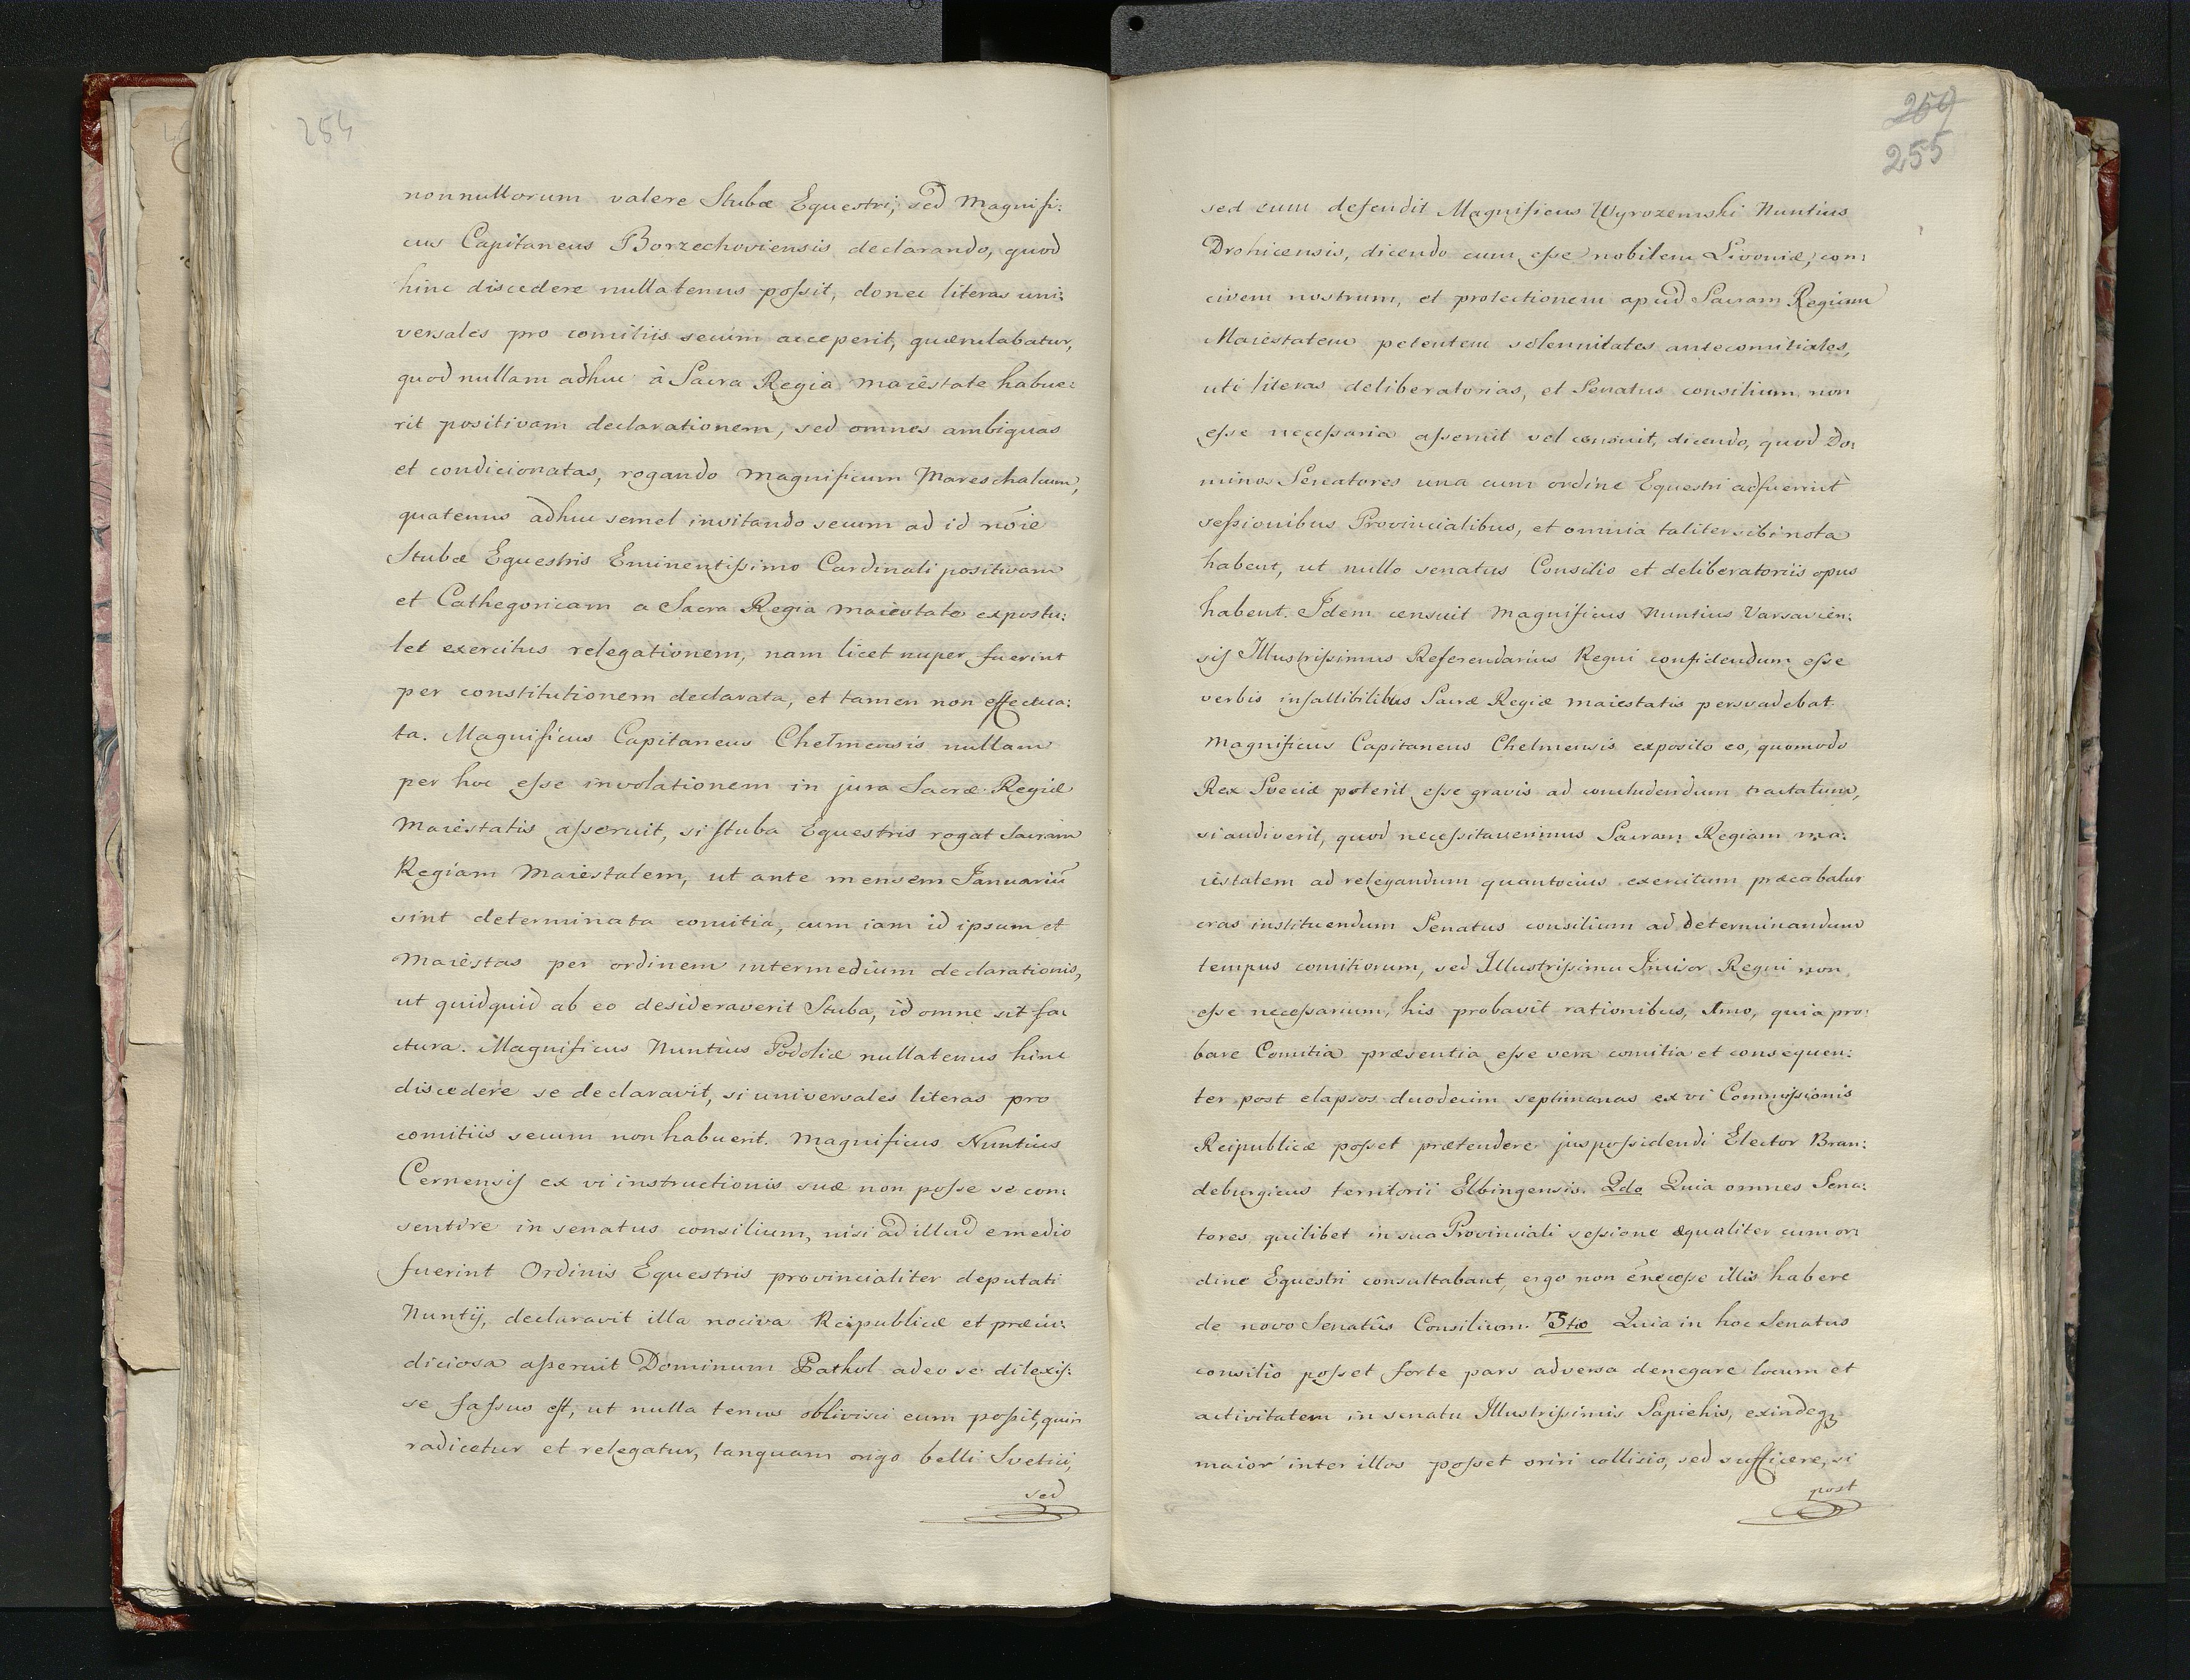 254
nonnullorum valere Stubæ Equestri; sed Magnifi:
cus Capitaneus Borzechoviensis declarando, quod
hinc discedere nullatenus possit, donec literas uni:
versales pro comitiis secum acceperit, quærulabatur,
quod nullam adhuc à Sacra Regia maiestate habue:
rit positivam declarationem, sed omnes ambiguas
et condicionatas, rogando Magnificum Mareschalcum,
quatenus adhuc semel invitando secum ad id nõie
Stubæ Equestris Eminentissimo Cardinali positivam
et Cathegoricam a Sacra Regia maiestate expostu:
let exercitus relegationem, nam licet nuper fuerint
per constitutionem declarata, et tamen non effectua:
ta. Magnificus Capitaneus Chelmensis nullam
per hoc esse involationem in jura Sacræ Regiæ
Maiestatis asseruit, si stuba Equestris rogat Sacram
Regiam Maiestatem, ut ante mensem Januariũ
sint determinata comitia, cum iam id ipsum et
Maiestas per ordinem intermedium declarationis,
ut quidquid ab eo desideraverit Stuba, id omne sit fa:
ctura. Magnificus Nuntius Podoliæ nullatenus hinc
discedere se declaravit, si universales literas pro
comitiis secum non habuerit. Magnificus Nuntius
Cernensis ex vi instructionis suæ non posse se con:
sentire in senatus consilium, nisi ad illud e medio
fuerint Ordinis Equestris provincialiter deputati
Nuntij, declaravit illa nociva Reipublicæ et præiu:
diciosa asseruit Dominum Pathul adeo se dilexis:
se fassus est, ut nulla tenus oblivisci eum possit, quin
radicetur et relegatur, tanquam origo belli Svetici,
sed
259
255
sed eum defendit Magnificus Wyrozemski Nuntius
Drohicensis, dicendo eum esse nobilem Livoniæ, con:
civem nostrum, et protectionem apud Sacram Regiam
Maiestatem petentem solennitates antecomitiales,
uti literas deliberatorias, et Senatus consilium non
esse necessaria asseruit vel censuit, dicendo, quod Do:
minos Senatores una cum ordine Equestri adfuerint
sessionibus Provincialibus, et omnia taliter sibi nota
habent, ut nullo senatus Consilio et deliberatoriis opus
habent. Idem censuit Magnificus Nuntius Varsavien:
sis Illustrissimus Referendarius Regni confidendum esse
verbis infallibilibus Sacræ Regiæ maiestatis persvadebat.
Magnificus Capitaneus Chelmensis exposito eo, quomodo
Rex Sveciæ poterit esse gravis ad concludendum tractatum,
si audiverit, quod necessitaverimus Sacram Regiam ma:
iestatem ad relegandum quantocius exercitum præcabatur
cras instituendum Senatus consilium ad determinandum
tempus comitiorum, sed Illustrissimu Incisor Regni non
esse necessarium, his probavit rationibus, 1mo, quia pro:
bare Comitia præsentia esse vera comitia et consequen:
ter post elapsos duodecim septimanas ex vi Commissionis
Reipublicæ posset prætendere jus possidendi Elector Bran:
deburgicus territorii Elbingensis. 2do Quia omnes Sena:
tores, quilibet in sua Provinciali sessione æqualiter cum or:
dine Equestri consultabant, ergo non ẽ necesse illis habere
de novo Senatûs Consilium. 3tio Quia in hoc Senatus
consilio posset forte pars adversa denegare locum et
activitatem in senatu Illustrissimis Sapiehis, exindeq3
maior inter illos posset oriri collisio, sed sufficere, si
post